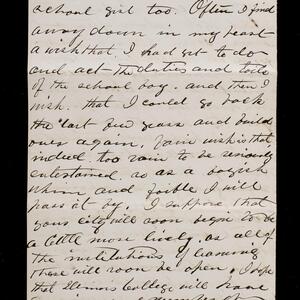 school girl too. Often I find
away down in my heart
a wish that I had yet to do
and act the duties and toils
of the school boy. and then I
wish that I could go back
the last few years and build
over again, Vain wish is that
indeed too vain to be seriously
entertained. so as a boyish
whim and foible I will
pass it by. I suppose that
your city will soon begin to be
a little more lively, as all of
the institutions of learning
these will soon be open. I hope
that Illinois College will have